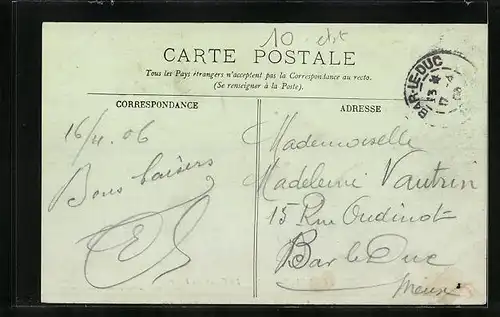 10 
CARTE POSTALE
Tous les Pays étrangers n'acceptent pas la Correspondance au recto.
(Se renseigner à la Poste).
BAR-LE-DUC
13
17 -4
06
CORRESPONDANCE
16/4.06
Bons baisers
ADRESSE
Mademoiselle
Madeleine Vautrin
15 Rue Oudinot
Bar le Duc
Meuse